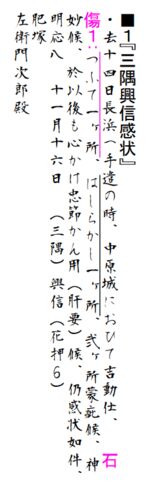 ■1『三隅興信感状』
・去十四日長浜へ手遣の時、中原城におひて吉動仕、石
傷1:つふて一ヶ所、はしらかし一ヶ所、弐ヶ所蒙疵候、神
妙候、於以後も心かけ忠節かん用(肝要)候、仍感状如件、
明応八 十一月十六日 (三隅)興信(花押6)
肥塚
左衛門次郎殿